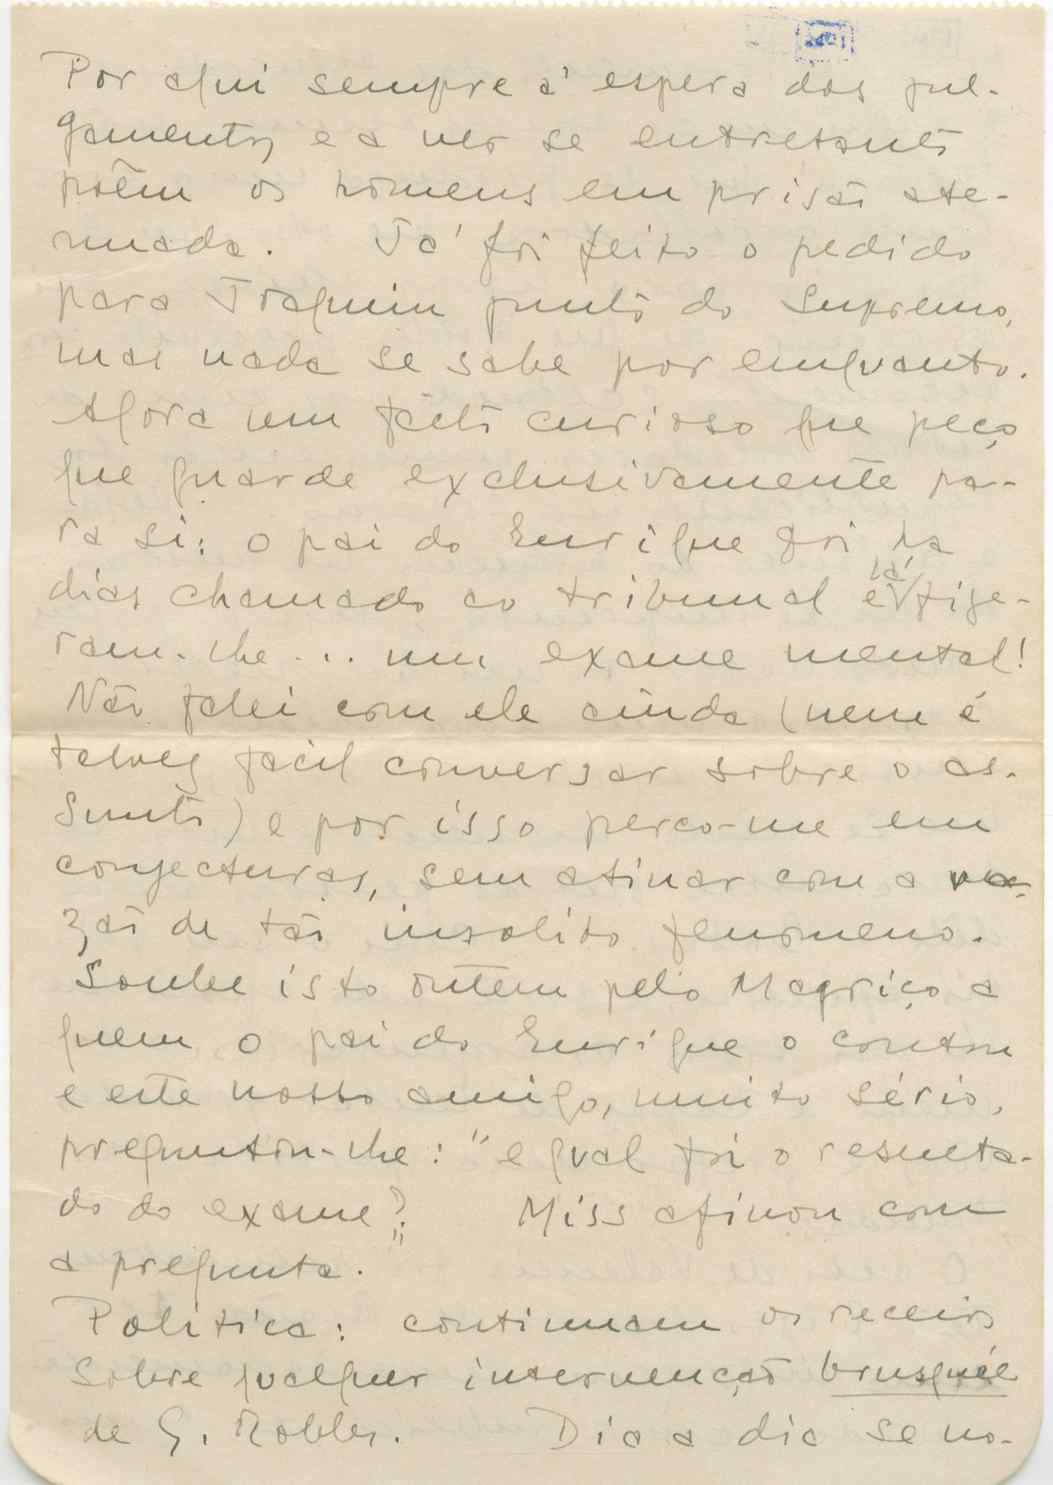 Por aqui sempre á espera dos jul-
gamentos e a ver se entretanto
põem os homens em prisão ate-
nuada. Já foi feito o pedido
para Joaquim junto do Supremo,
mas nada se sabe por emquanto.
Agora um facto curioso que peço
que guarde exclusivamente pa-
ra si: o pai do Enrique foi ha
dias chamado ao tribunal e lá fize-
ram-lhe ... um exame mental!
Não falei com ele ainda (nem é
talvez facil conversar sobre o as-
sunto) e por isso perco-me em
conjecturas, sem atinar com a ra-
zão de tão insolito fenomeno.
Soube isto ontem pelo Magriço a
quem o pai do Enrique o contou
e este nosso amigo, muito sério,
preguntou-lhe: "e qual foi o resulta-
do do exame?" Miss afinou com
a pregunta.
Politica: continuam os receios
sobre qualquer intervenção brusquée
de G. Robles. Dia a dia se no-